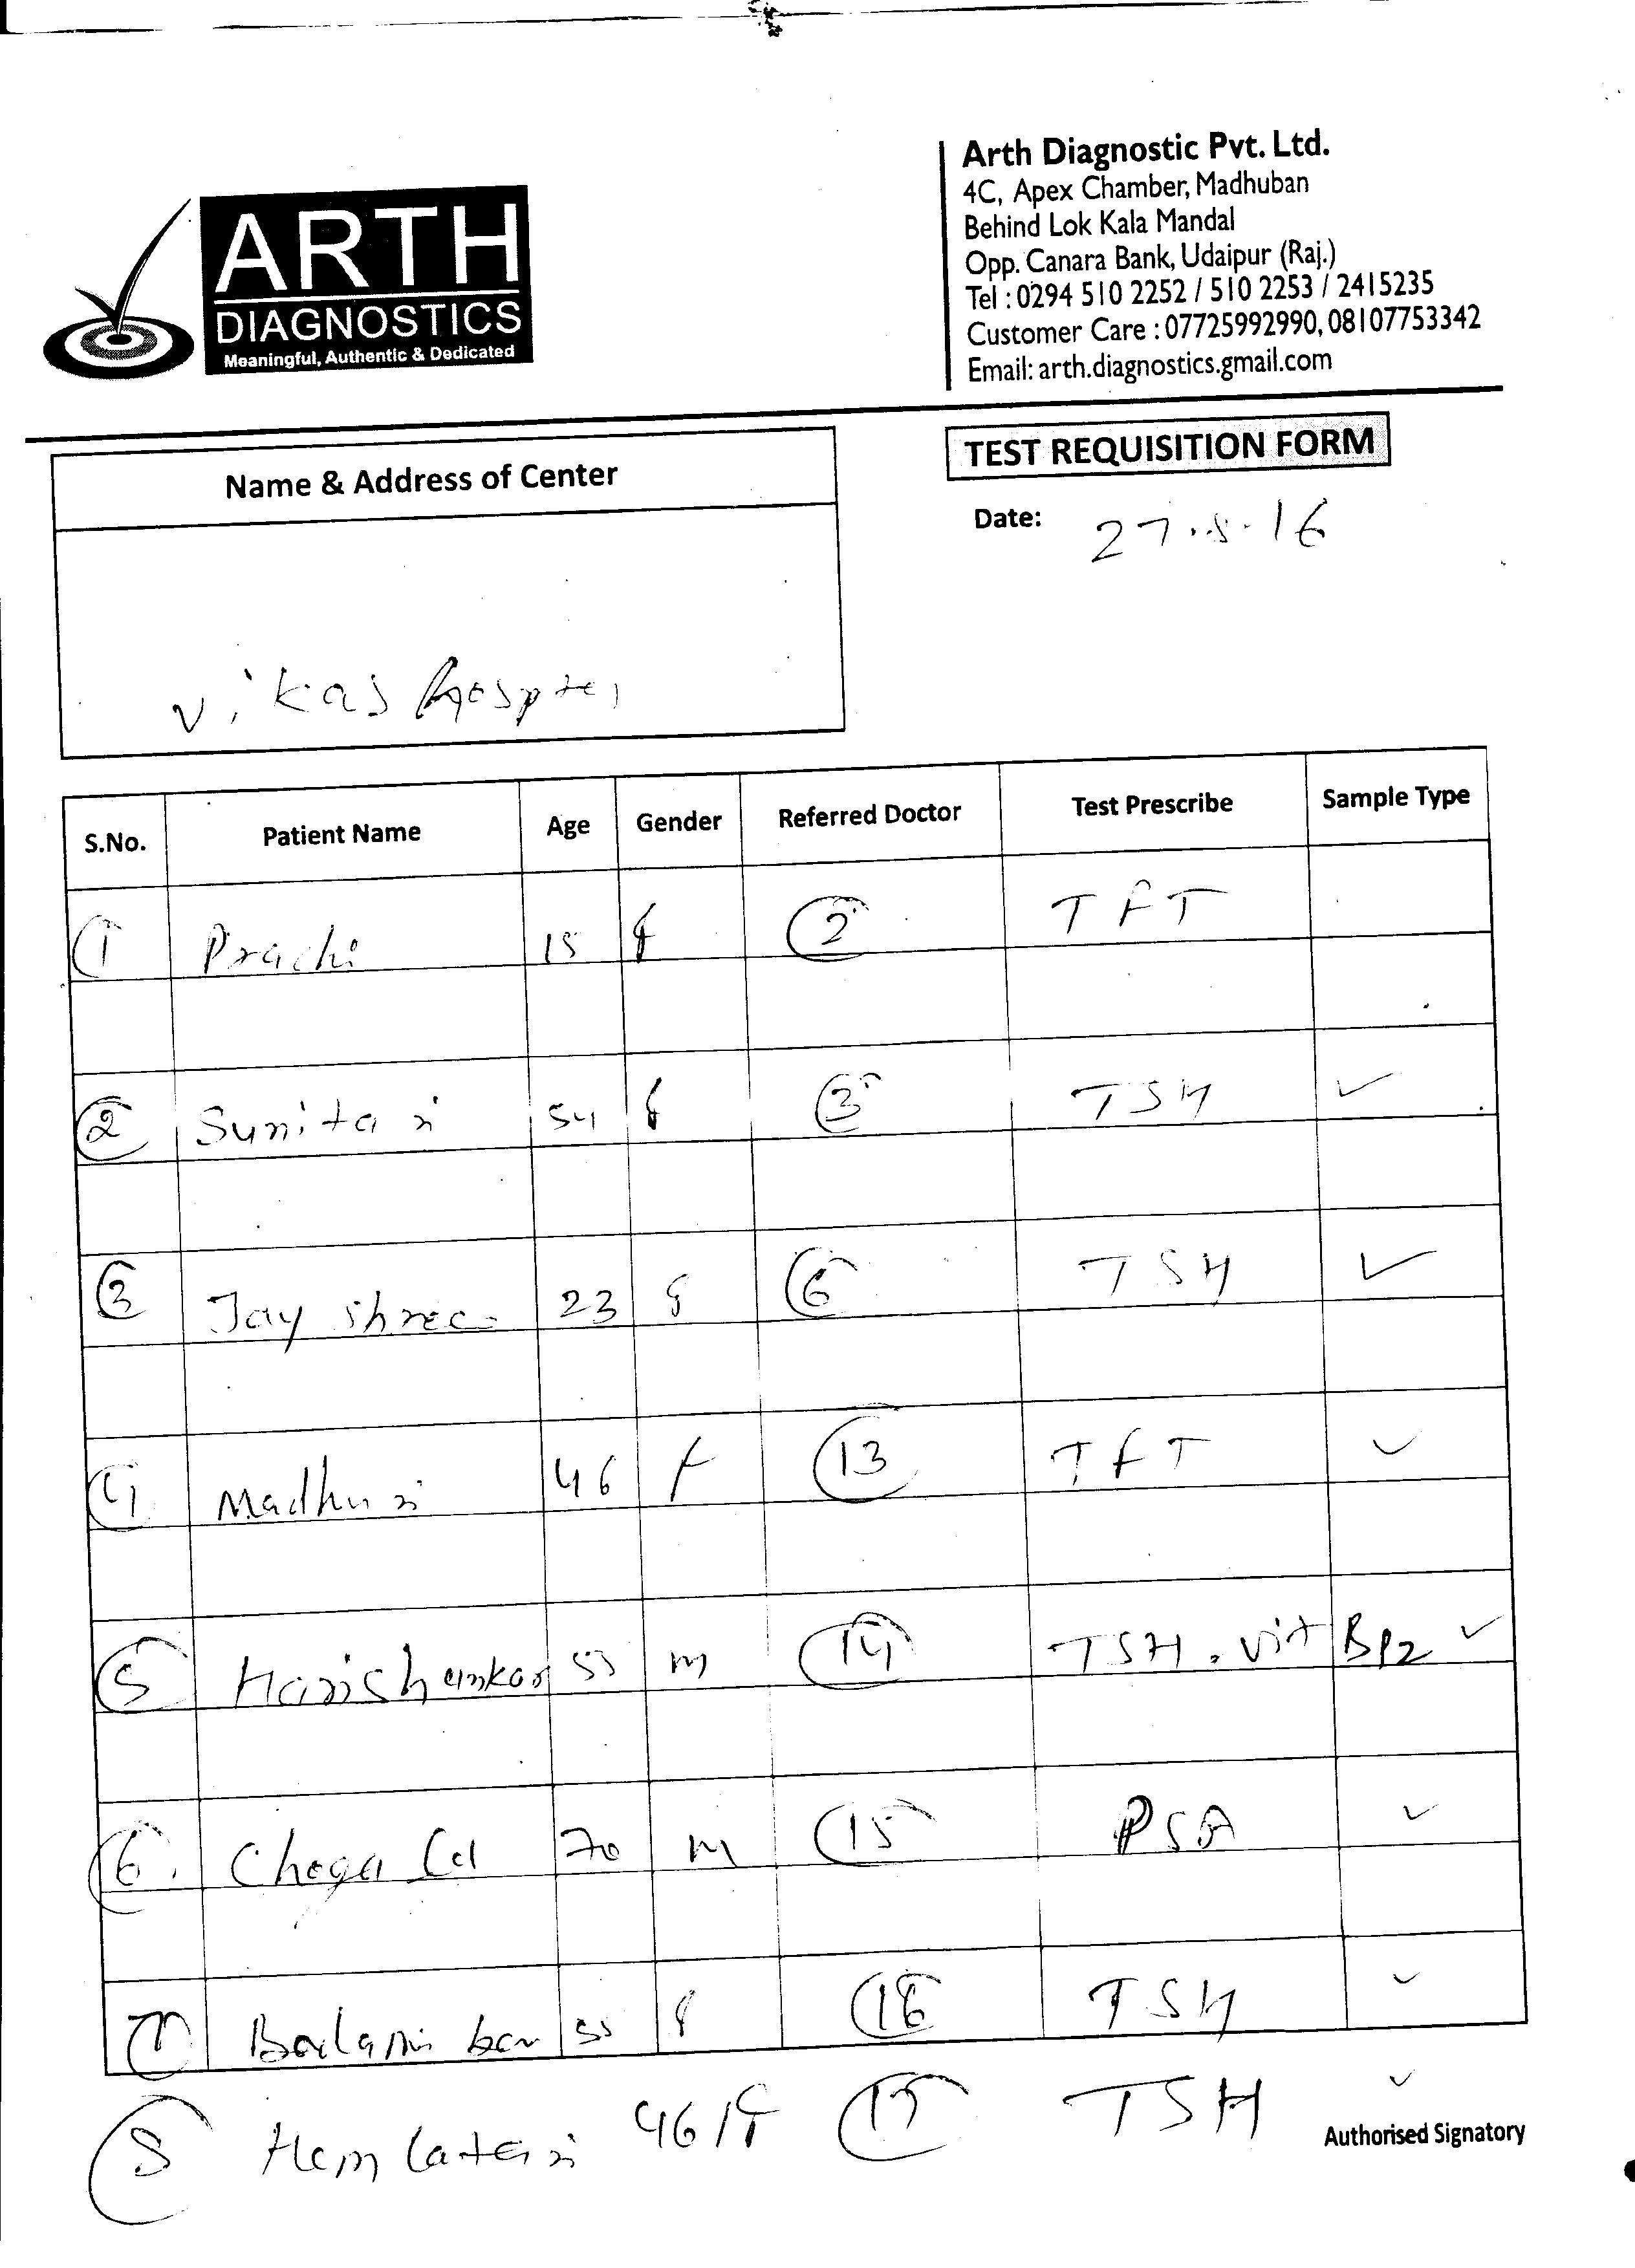 ARTH
DIAGNOSTICS
Meaningful, Authentic & Dedicated
Arth Diagnostic Pvt. Ltd.
4C, Apex Chamber, Madhuban
Behind Lok Kala Mandal
Opp. Canara Bank, Udaipur (Raj.)
Tel : 0294 510 2252 / 510 2253 / 2415235
Customer Care : 07725992990, 08107753342
Email: arth.diagnostics.gmail.com
Name & Address of Center
TEST REQUISITION FORM
Date: 27.8.16
Vikas
S.No. Patient Name Age Gender Referred Doctor Test Prescribe Sample Type
1 Prachi 15 f 2 TFT
2 Sunita 54 f 3 TSH ✓
3 Jay shree 23 f 6 TSH ✓
4 Madhu 46 f 13 TFT ✓
5 Harishankar 55 m 14 TSH. Vit B12 ✓
6. 70 m 15 PSA ✓
7 55 f 16 TSH ✓
8 Hemlata 46/f 17 TSH ✓
Authorised Signatory